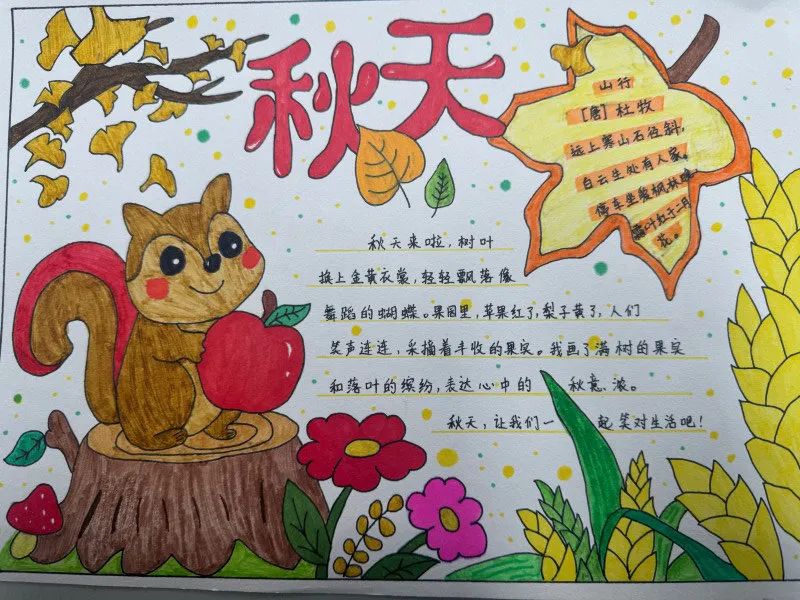 秋天
山行
[唐]杜牧
远上寒山石径斜，
白云生处有人家。
停车坐爱枫林晚
霜叶红于二月
花。
秋天来啦，树叶
换上金黄衣裳，轻轻飘落像
舞蹈的蝴蝶。果园里，苹果红了，梨子黄了，人们
笑声连连，采摘着丰收的果实。我画了满树的果实
和落叶的缤纷，表达心中的 秋意浓。
秋天，让我们一 起笑对生活吧！